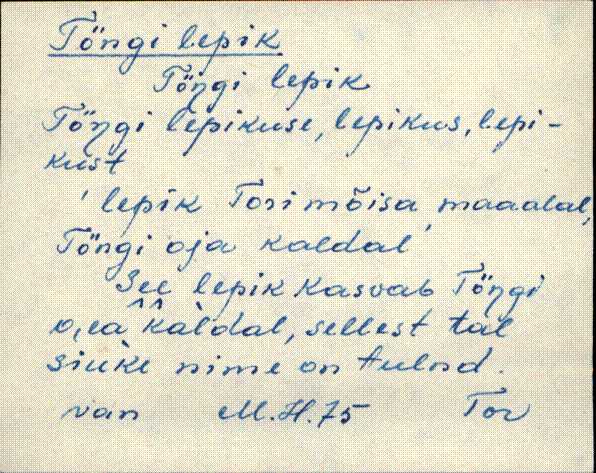 Töngi lepik
Töŋgi lepik
Töŋgi lepikuse, lepikus, lepi-
kust
' lepik Tori mõisa maadal,
Töngi oja kaldal'
See lepik kasvab Töŋgi
o,ea kàldal, sellest tal
siuke nime on tulnd.
van M.H.75 Tor